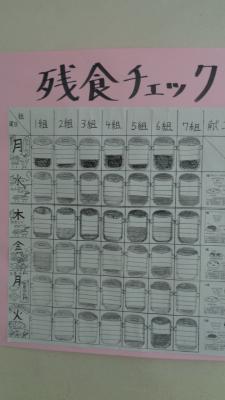 残食チェック
組
曜日
1組 2組 3組 4組 5組 6組 7組 献立
月
水
木
金
月
火